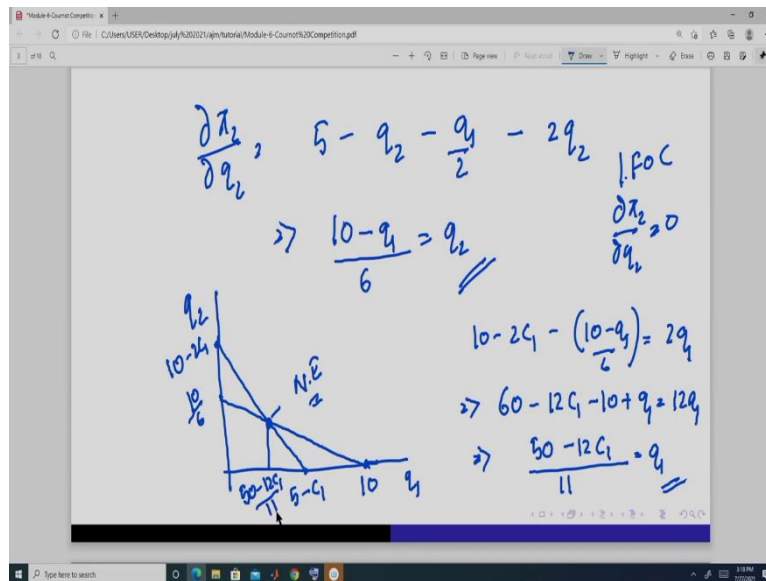 *Module-6-Cournot Competitio
File | C:/Users/USER/Desktop/july%202021/ajm/tutorial/Module-6-Cournot%20Competition.pdf
3 of 18
Page view | Read aloud | Draw Highlight Erase
∂π₂/∂q₂ , 5 - q₂ - q₁/2 - 2q₂
1. FOC
∂π₂/∂q₂ = 0
=> (10 - q₁)/6 = q₂
10 - 2C₁ - ((10 - q₁)/6) = 2q₁
=> 60 - 12C₁ - 10 + q₁ = 12q₁
=> (50 - 12C₁)/11 = q₁
q₂
10 - 2C₁
10/6
N.E
(50 - 12C₁)/11 5 - C₁ 10 q₁
Type here to search
3:18 PM
7/27/2021